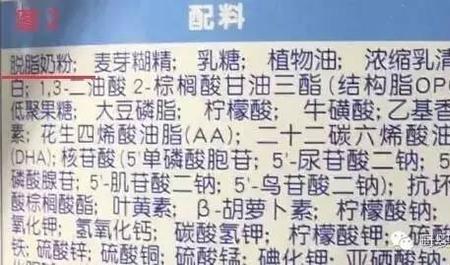 图2
配料
脱脂奶粉; 麦芽糊精; 乳糖; 植物油; 浓缩乳清
白; 1,3-二油酸 2-棕榈酸甘油三酯 (结构脂OPO
低聚果糖; 大豆磷脂; 柠檬酸; 牛磺酸; 乙基香
素; 花生四烯酸油脂(AA); 二十二碳六烯酸油
(DHA); 核苷酸 (5'单磷酸胞苷; 5'-尿苷酸二钠;
磷酸腺苷; 5'-肌苷酸二钠; 5'-鸟苷酸二钠); 抗坏
酸棕榈酸酯; 叶黄素; β-胡萝卜素; 柠檬酸钠;
氧化钾; 氢氧化钙; 碳酸氢钾; 柠檬酸钾
铁; 硫酸锌; 硫酸铜; 硫酸锰; 碘化钾; 亚硒酸钠